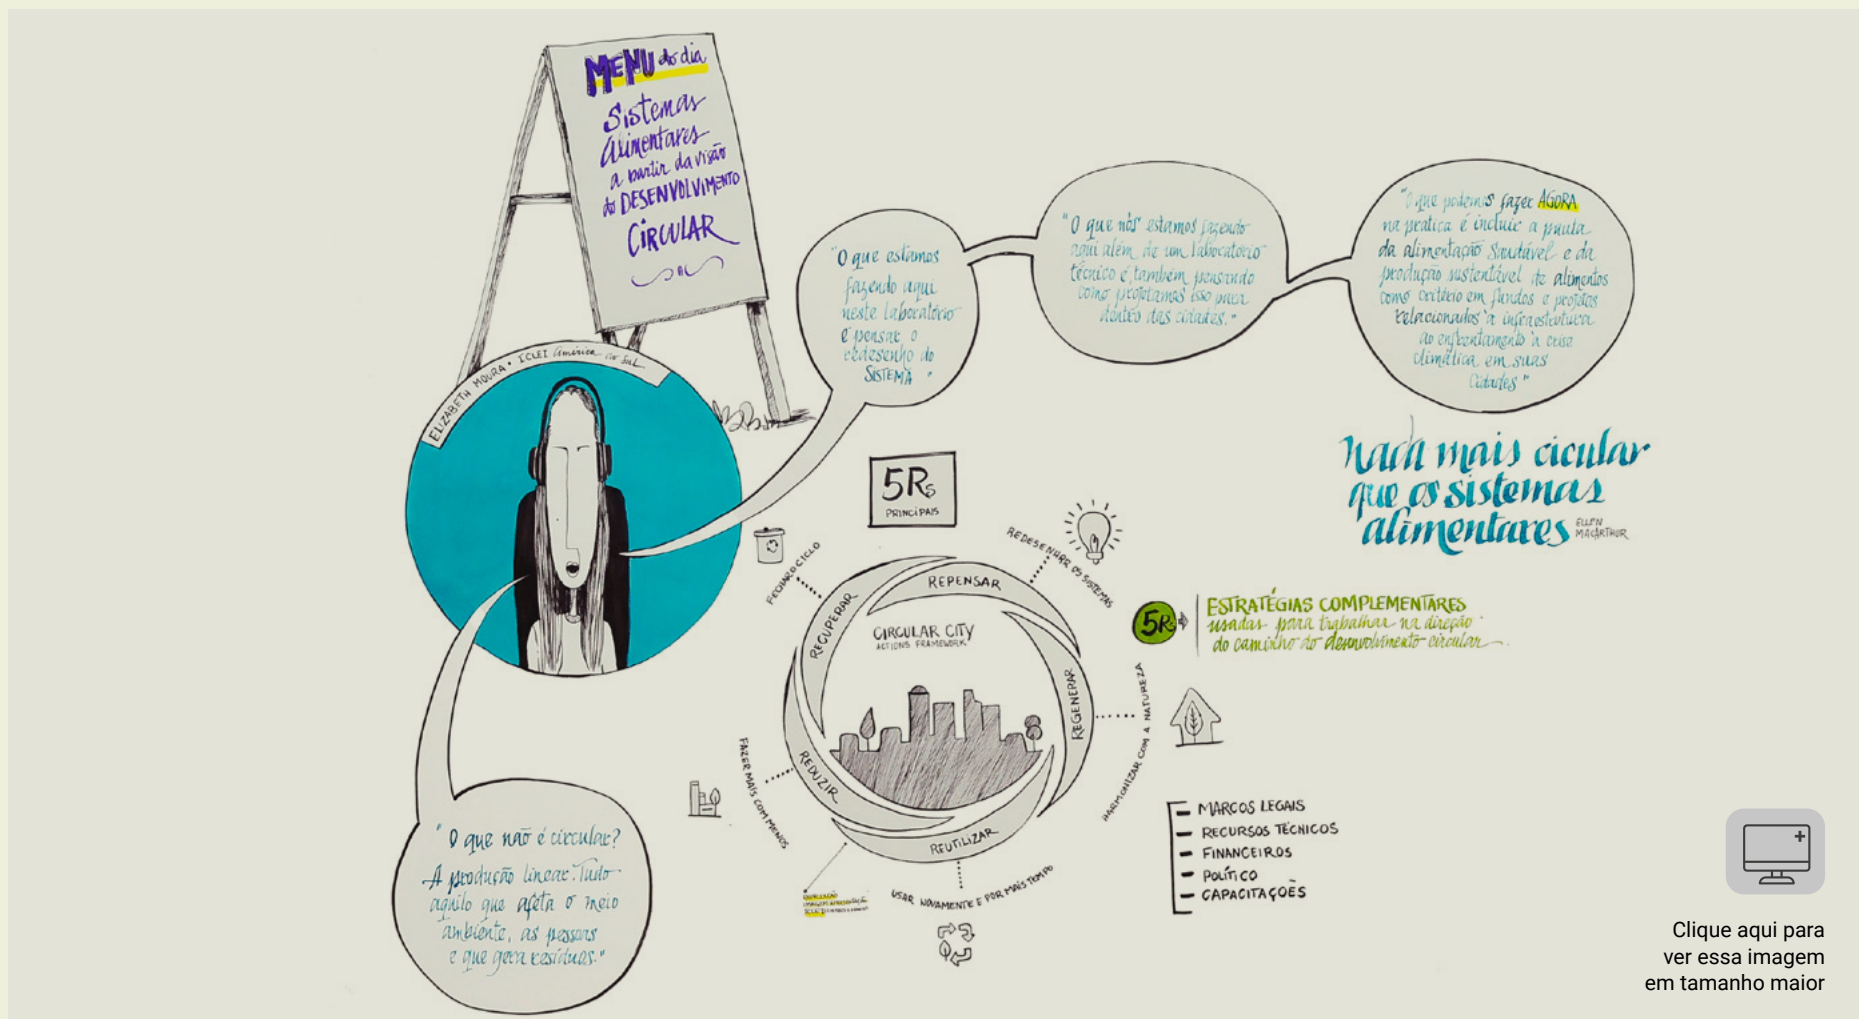 MENU do dia
Sistemas
alimentares
a partir da visão
do DESENVOLVIMENTO
CIRCULAR
ELIZABETH MOURA • ICLEI América do Sul
"O que estamos
fazendo aqui
neste laboratório
é pensar o
redesenho do
SISTEMA"
"O que nós estamos fazendo
aqui além de um laboratório
técnico é, também pensando
como projetamos isso para
dentro das cidades."
"O que podemos fazer AGORA
na pratica é incluir a pauta
da alimentação saudável e da
produção sustentável de alimentos
como critério em fundos e projetos
relacionados à infraestrutura
ao enfrentamento à crise
climática em suas
Cidades"
Nada mais cicular
que os sistemas
alimentares
ELLEN
MACARTHUR
5Rs
PRINCIPAIS
FECHAR O CICLO
REDESENHAR OS SISTEMAS
RECUPERAR
REPENSAR
REGENERAR
REUTILIZAR
REDUZIR
CIRCULAR CITY
ACTIONS FRAMEWORK
HARMONIZAR COM A NATUREZA
FAZER MAIS COM MENOS
USAR NOVAMENTE E POR MAIS TEMPO
5Rs
ESTRATÉGIAS COMPLEMENTARES
usadas para trabalhar na direção
do caminho do desenvolvimento circular
- MARCOS LEGAIS
- RECURSOS TÉCNICOS
- FINANCEIROS
- POLÍTICO
- CAPACITAÇÕES
"O que não é circular?
A produção linear. Tudo
aquilo que afeta o meio
ambiente, as pessoas
e que gera resíduos."
Clique aqui para
ver essa imagem
em tamanho maior